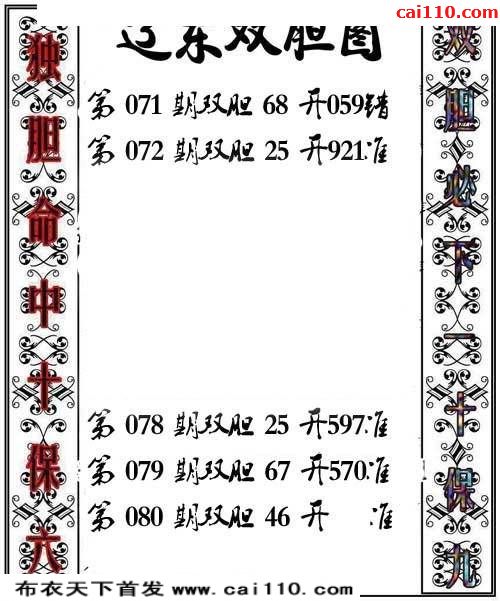 彩吧 cai110.com
辽东双胆图
第 071 期双胆 68 开059错
第 072 期双胆 25 开921准
第 078 期双胆 25 开597准
第 079 期双胆 67 开570准
第 080 期双胆 46 开 准
独胆命中十保六
双胆必下一十保九
布衣天下首发 www.cai110.com